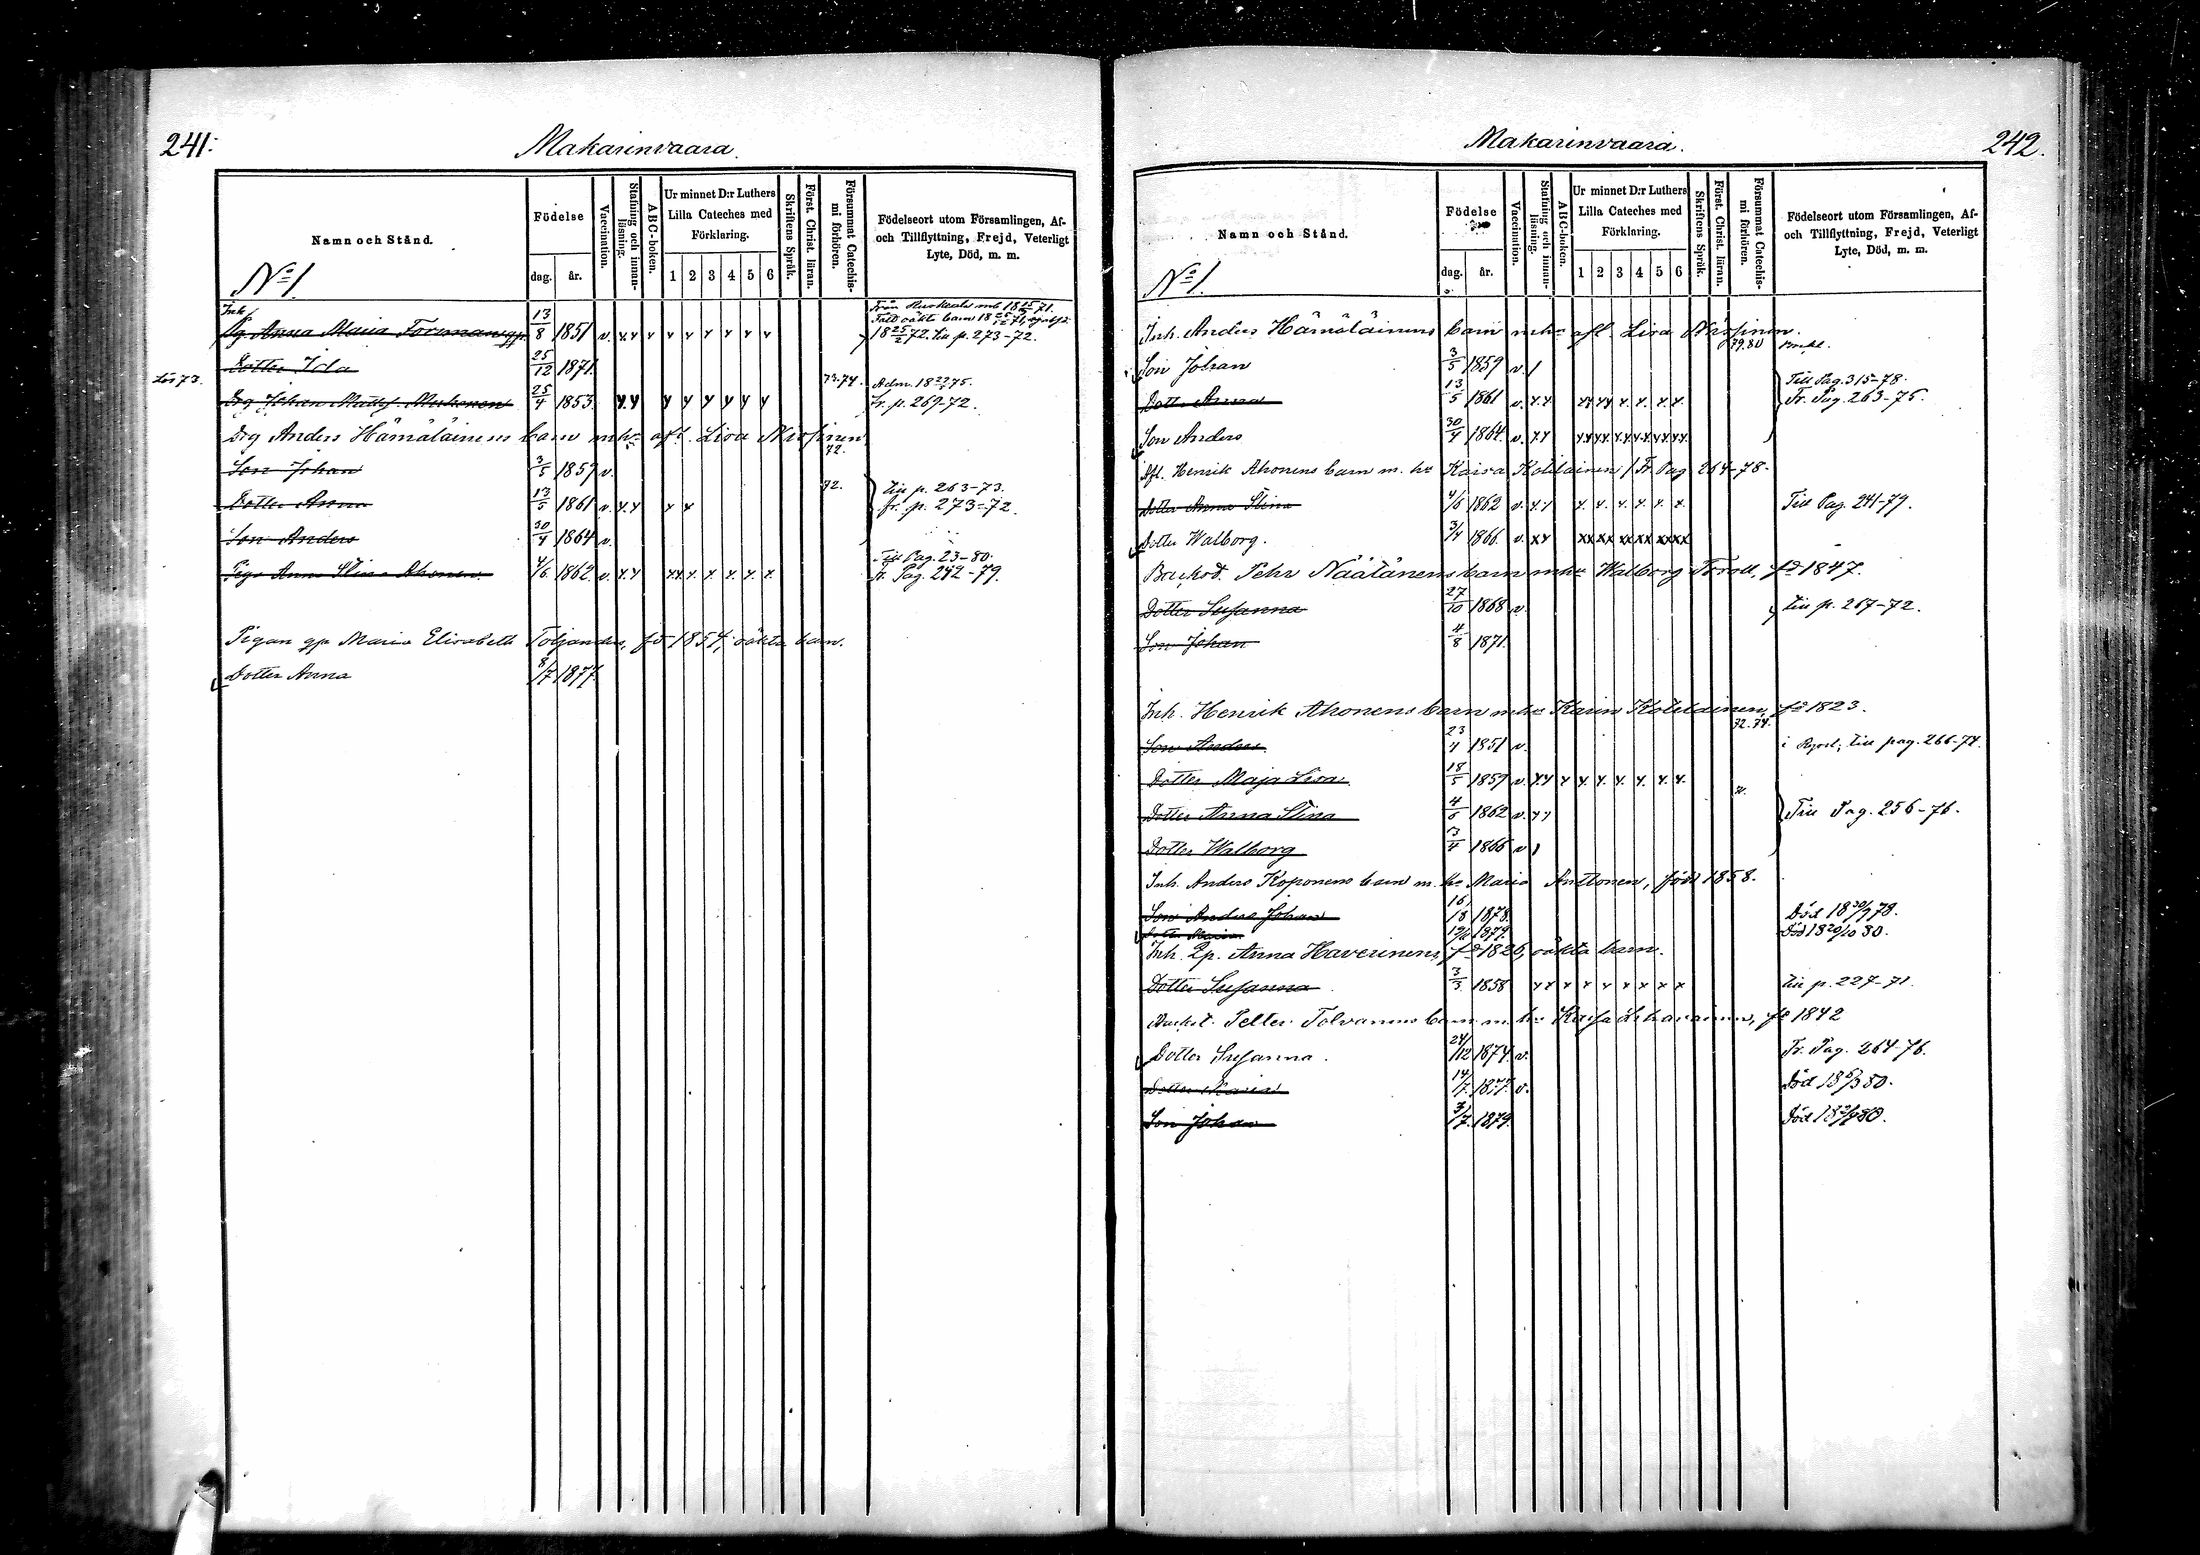 241.
Makarinvaara.
Namn och Stånd.
Födelse
dag.
år.
Vaccination.
Stafning och innanläsning.
ABC-boken.
Ur minnet D:r Luthers
Lilla Cateches med
Förklaring.
1 2 3 4 5 6
Skriftens Språk.
Först. Christ. läran.
Försummat Catechismi förhören.
Födelseort utom Församlingen, Af-
och Tillflyttning, Frejd, Veterligt
Lyte, Död, m. m.
No 1.
Inh.
Pig. Anna Maria Forsman qp. 13/8 1851 v. 18 25/2 72. till p. 273-72.
Dotter Ida 25/12 1871.
Drg Johan Matts. Muhonen 25/4 1853. 73.74. Adm. 18 75.
fr. p. 269-72.
Drg Anders Hämäläinens barn mhu afl. Lisa
72.
Son Johan 3/5 1859 v.
Dotter Anna 13/5 1861 v. 72. till p. 263-73.
fr. p. 273-72.
Son Anders 30/4 1864 v.
Piga Anna Stina Ahonen 4/6 1862 v. Till Pag. 23-80.
fr. Pag. 242-79.
Pigan qp Maria Elisabeth fö 1854, oäkta barn.
Dotter Anna 8/7 1877.
242.
Makarinvaara.
Namn och Stånd.
Födelse
dag.
år.
Vaccination.
Stafning och innanläsning.
ABC-boken.
Ur minnet D:r Luthers
Lilla Cateches med
Förklaring.
1 2 3 4 5 6
Skriftens Språk.
Först. Christ. läran.
Försummat Catechismi förhören.
Födelseort utom Församlingen, Af-
och Tillflyttning, Frejd, Veterligt
Lyte, Död, m. m.
No 1.
Inh. Anders Hämäläinens barn mhu afl. Lisa
79.80
Son Johan 3/5 1859 v.
Dotter Anna 13/5 1861 v. Till Pag. 315-78.
Fr. Pag. 263-75.
Son Anders 30/4 1864 v.
Afl. Henrik Ahonens barn m. hu Kaisa Kotilainen / Fr. Pag. 264-78.
Dotter Anna Stina 4/6 1862 v. Till Pag. 241-79.
Dotter Walborg. 3/4 1866 v.
Pehr Näätänens barn mhu Walborg fd 1847.
Dotter Susanna 27/10 1868 v. till p. 267-72.
Son Johan 4/8 1871.
Inh. Henrik Ahonens barn mhu Karin Kotilainen, fd 1823.
72.74.
Son Anders 23/4 1851 v. till pag. 266-74.
Dotter Maja Lisa 18/5 1859 v.
Dotter Anna Stina 4/6 1862 v. Till Pag. 256-76.
Dotter Walborg 3/4 1866 v
Inh. Anders Koponens barn m. hu Maria Anttonen, född 1858.
Son Anders Johan 16/8 1878. Död 18 30/9 78.
Dotter Maria 1879. Död 18 20/10 80.
Inh. Qp. Anna Haverinens, fd 1826, oäkta barn.
Dotter Susanna 3/3 1858 till p. 227-71.
Petter Tolvanens barn m. hu Kajsa fd 1842
Dotter Susanna. 24/12 1874. v. Fr. Pag. 264-76.
Dotter Maria 14/7 1877. v. Död 18 80.
Son Johan 3/7 1879. Död 18 80.